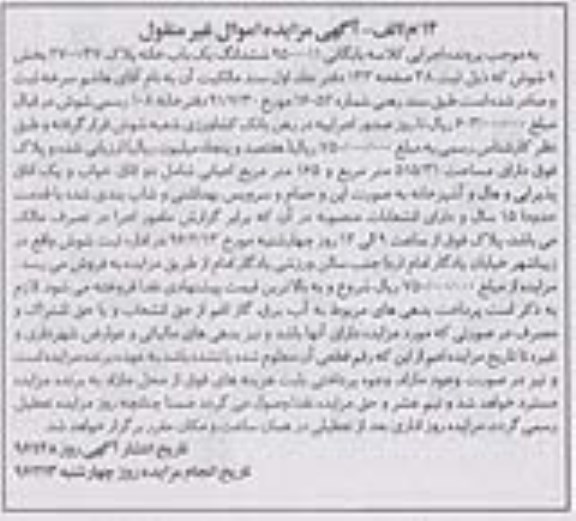 ۱۲ م/الف - آگهی مزایده اموال غیر منقول
به موجب پرونده اجرایی کلاسه بایگانی ششدانگ یک باب خانه پلاک بخش
۹ شوش که ذیل ثبت ۲۸ صفحه ۱۳۳ دفتر جلد اول سند مالکیت آن به نام آقای هاشم سرخه ثبت
و صادر شده است طبق سند رهنی شماره مورخ دفترخانه ۱۰۸ رسمی شوش در قبال
مبلغ ریال تا روز صدور اجراییه در رهن بانک کشاورزی شعبه شوش قرار گرفته و طبق
نظر کارشناس رسمی به مبلغ ریال هفتصد و پنجاه میلیون ریال ارزیابی شده و پلاک
فوق دارای مساحت ۵۱۵/۳۱ متر مربع و ۱۶۵ متر مربع اعیانی شامل دو اتاق خواب و یک اتاق
پذیرایی و هال و آشپزخانه به صورت اپن و حمام و سرویس بهداشتی و شاب بندی شده با قدمت
حدودا ۱۵ سال و دارای انشعابات منصوبه در آن که برابر گزارش مامور اجرا در تصرف مالک
می باشد، پلاک فوق از ساعت ۹ الی ۱۲ روز چهارشنبه مورخ ۹۶/۳/۱۳ در اداره ثبت شوش واقع در
زیباشهر خیابان یادگار امام جنب سالن ورزشی یادگار امام از طریق مزایده به فروش می رسد.
مزایده از مبلغ ریال شروع و به بالاترین قیمت پیشنهادی نقدا فروخته می شود لازم
به ذکر است پرداخت بدهی های مربوط به آب، برق، گاز اعم از حق انشعاب و یا حق اشتراک و
مصرف در صورتی که مورد مزایده دارای آنها باشد و نیز بدهی های مالیاتی و عوارض شهرداری و
غیره تا تاریخ مزایده اعم از این که رقم قطعی آن معلوم شده یا نشده باشد به عهده برنده مزایده است
و نیز در صورت وجود مازاد، وجوه پرداختی بابت هزینه های فوق از محل مازاد به برنده مزایده
مسترد خواهد شد و نیم عشر و حق مزایده نقدا وصول می گردد ضمنا چنانچه روز مزایده تعطیل
رسمی گردد، مزایده روز اداری بعد از تعطیلی در همان ساعت و مکان مقرر برگزار خواهد شد.
تاریخ انتشار آگهی روز
تاریخ انجام مزایده روز چهارشنبه